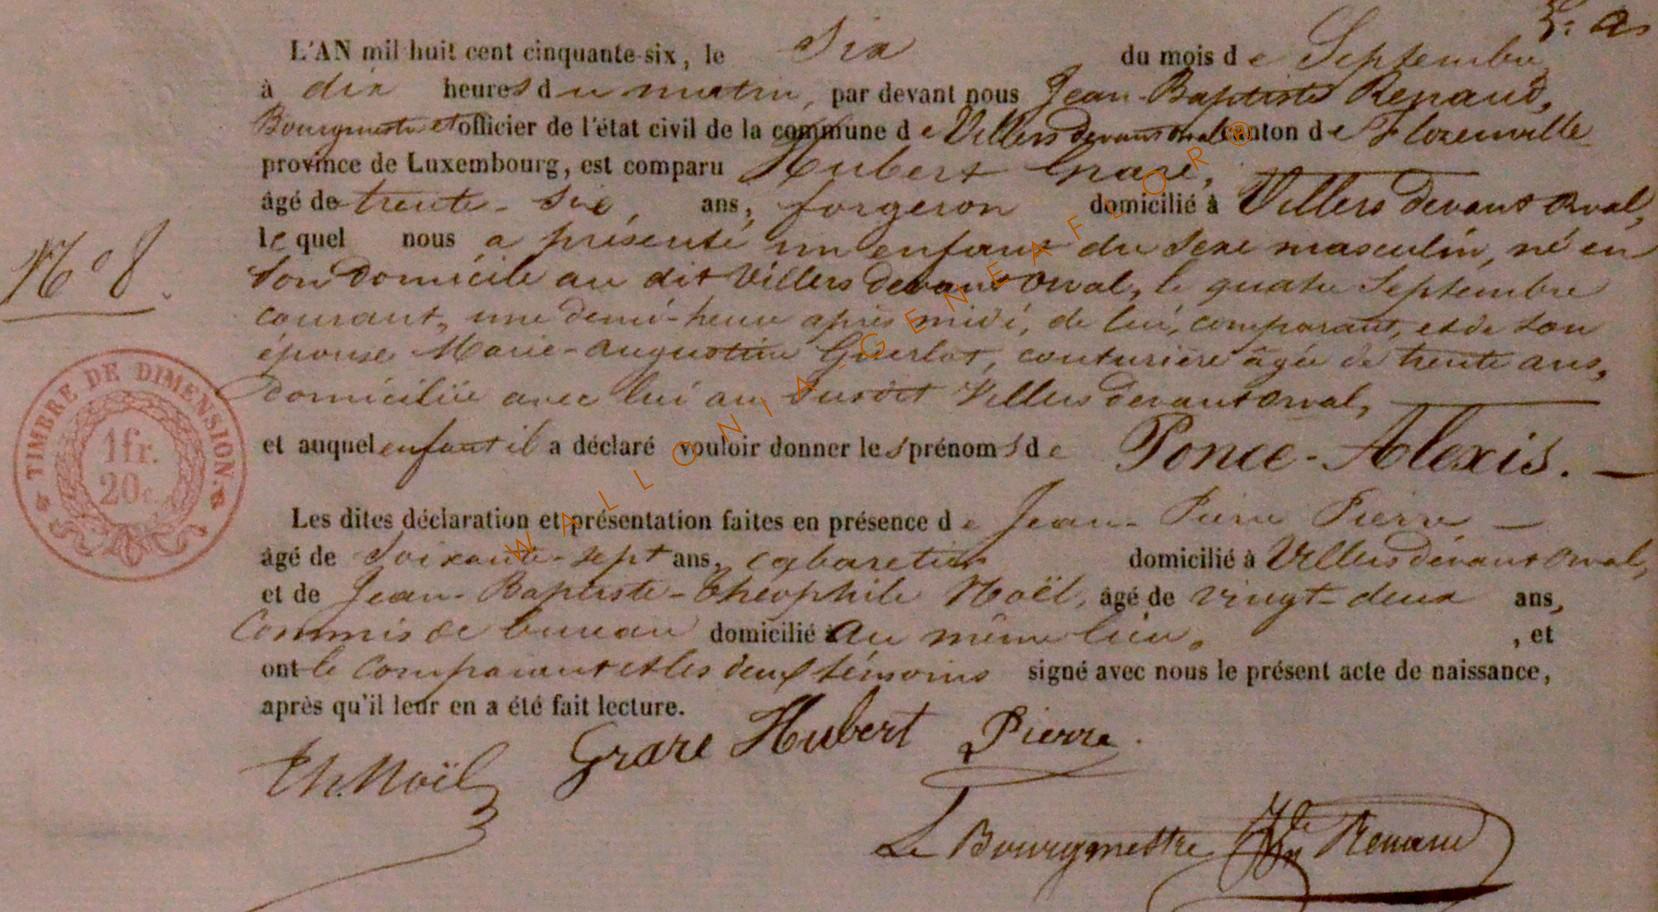 L'AN mil huit cent cinquante-six, le Six du mois de Septembre
à dix heures du matin, par devant nous Jean-Baptiste Renaud,
Bourgmestre et officier de l'état civil de la commune de Villers devant Orval canton de Florenville
province de Luxembourg, est comparu Hubert Grare,
âgé de trente-six, ans, forgeron domicilié à Villers devant Orval,
lequel nous a présenté un enfant du sexe masculin, né en
Son domicile au dit Villers devant Orval, le quatre Septembre
courant, une demi-heure après midi, de lui, comparant, et de son
épouse Marie-Augustine Guerlot, couturière âgée de trente ans,
domiciliée avec lui au susdit Villers devant Orval,
et auquel enfant il a déclaré vouloir donner les prénoms de Ponce-Alexis.
Les dites déclaration et présentation faites en présence de Jean-Pierre Pierre
âgé de Soixante-sept ans, cabaretier domicilié à Villers devant Orval,
et de Jean-Baptiste-Théophile Noël, âgé de vingt-deux ans,
Commis de bureau domicilié au même lieu, , et
ont le comparant et les deux témoins signé avec nous le présent acte de naissance,
après qu'il leur en a été fait lecture.
Nº 8.
TIMBRE DE DIMENSION.
1fr.
20c.
Th. Noël Grare Hubert Pierre
Le Bourgmestre Renaud
WALLONIA-GENEAFLOR®